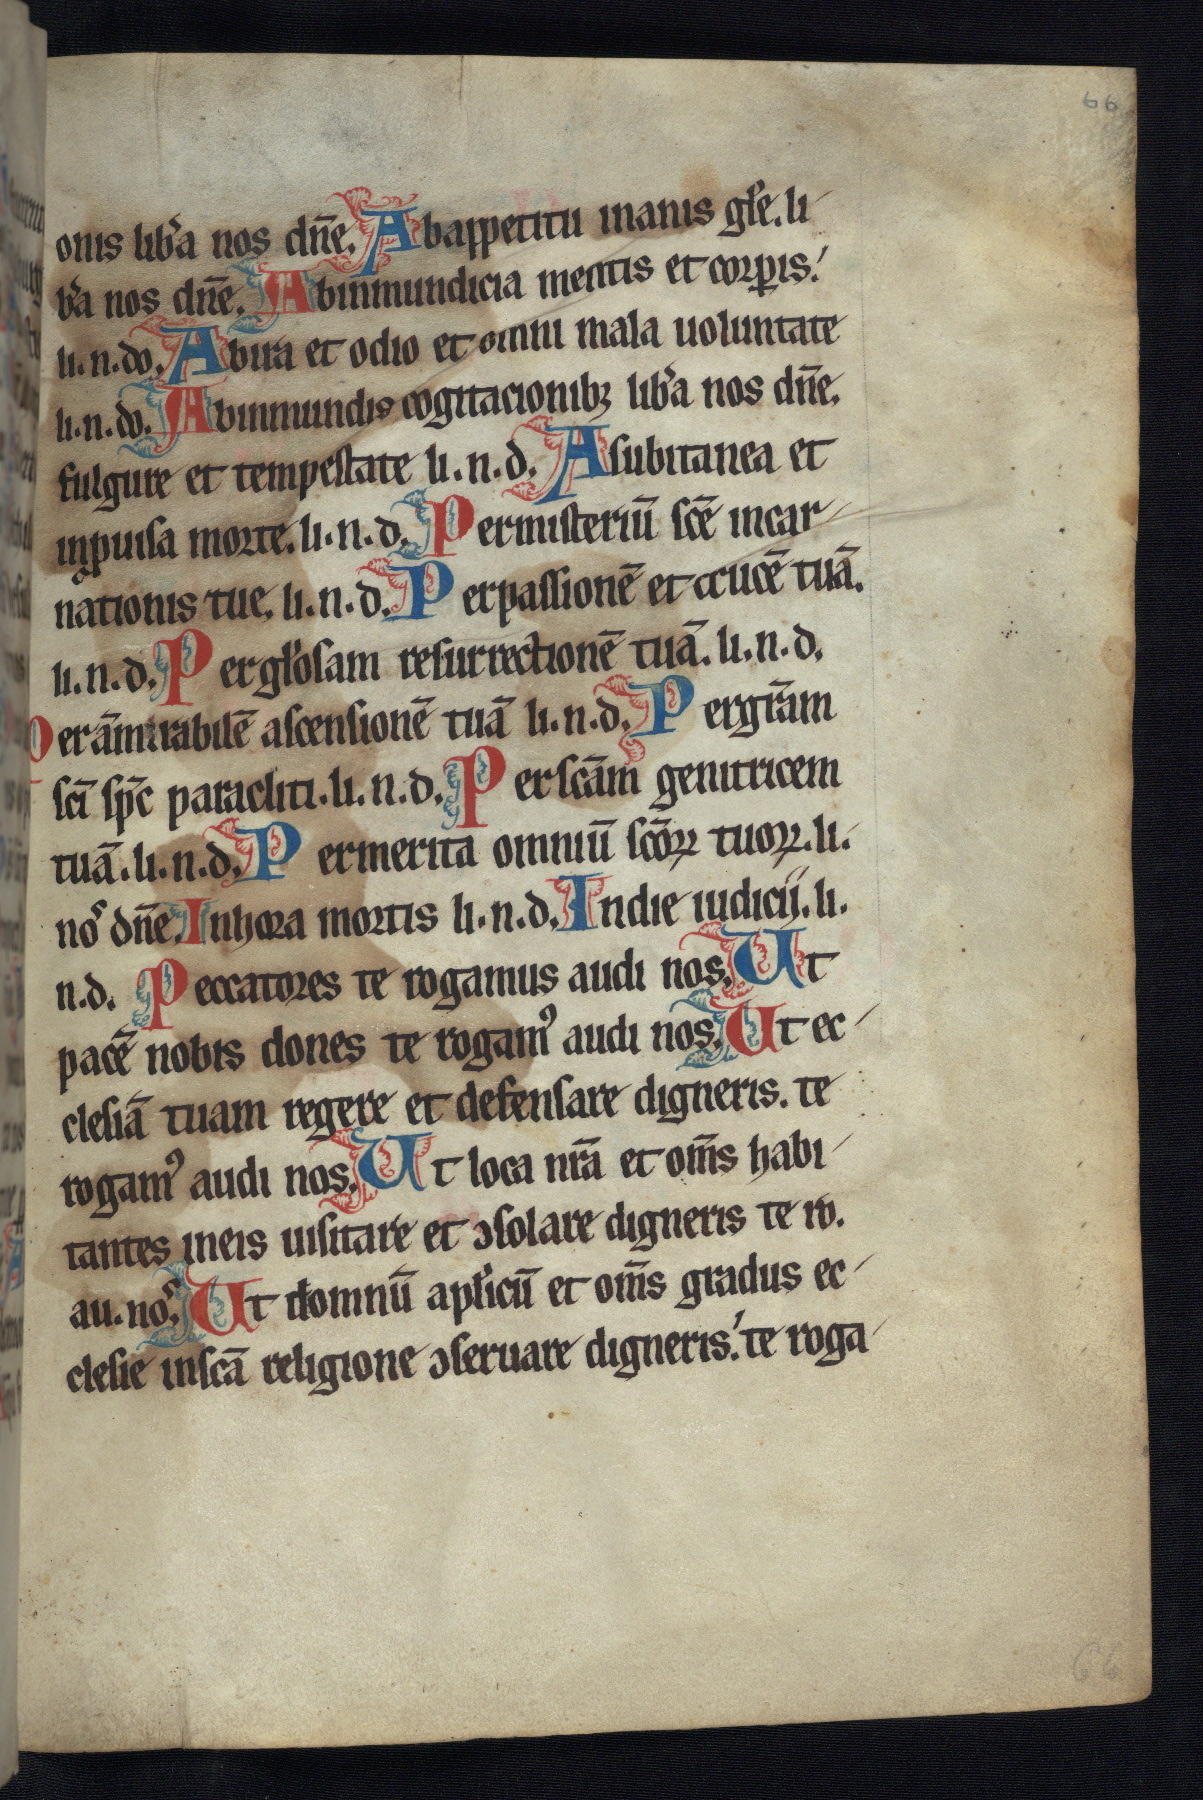 66
onis lib̾a nos dn̄e. Abappetitu inanis gl̄e. li
b̾a nos dn̄e. Abinmundicia mentis et corꝑis.
li. n. do. Abira et odio et omni mala uoluntate
li. n. do. Abinmundis cogitacionibꝫ lib̾a nos dn̄e.
fulgure et tempestate li. n. d. Asubitanea et
inpuisa morte. li. n. d. Permisteriū sc̄e incar
nationis tue. li. n. d. Perpassionē et crucē tuā.
li. n. d. Pergl̾osam resurrectionē tuā. li. n. d.
Perām̄irabilē ascensionē tuā li. n. d. Pergr̄am
sc̄i sp̄c paracliti. li. n. d. Perscām genitricem
tuā. li. n. d. Permerita omniū sc̄oꝝ tuoꝝ. li.
noᷤ dn̄e. Inhora mortis li. n. d. Indie iudicij. li.
n. d. Peccatores te rogamus audi nos. Ut
pacē nobis dones te rogamꝰ audi nos. Ut ec
clesiā tuam regere et defensare digneris. te
rogamꝰ audi nos. Ut loca nr̄a et om̄s habi
tantes ineis uisitare et ꝯsolare digneris te ro.
au. noᷤ. Ut domnū apl̾icū et om̄s gradus ec
clesie inscā religione ꝯseruare digneris. te roga
66